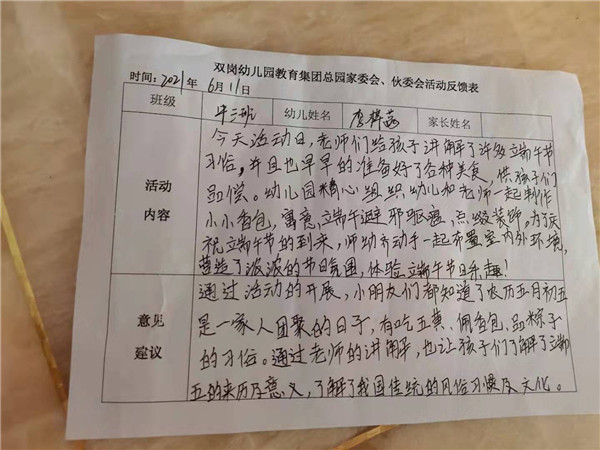 双岗幼儿园教育集团总园家委会、伙委会活动反馈表
时间:2021年 6月11日
班级 中三班 幼儿姓名 李梓菡 家长姓名
活动内容
今天活动日,老师们给孩子讲解了许多端午节
习俗,并且也早早的准备好了各种美食,供孩子们
品偿。幼儿园精心组织幼儿和老师一起制作
小小香包,寓意端午避邪驱瘟,点缀装饰。为了庆
祝端午节的到来,师幼齐动手一起布置室内外环境,
营造了浓浓的节日氛围,体验端午节日乐趣!
意见建议
通过活动的开展,小朋友们都知道了农历五月初五
是一家人团聚的日子,有吃五黄、佩香包、品粽子
的习俗。通过老师的讲解,也让孩子们了解了端
五的来历及意义,了解了我国传统的风俗习惯及文化。